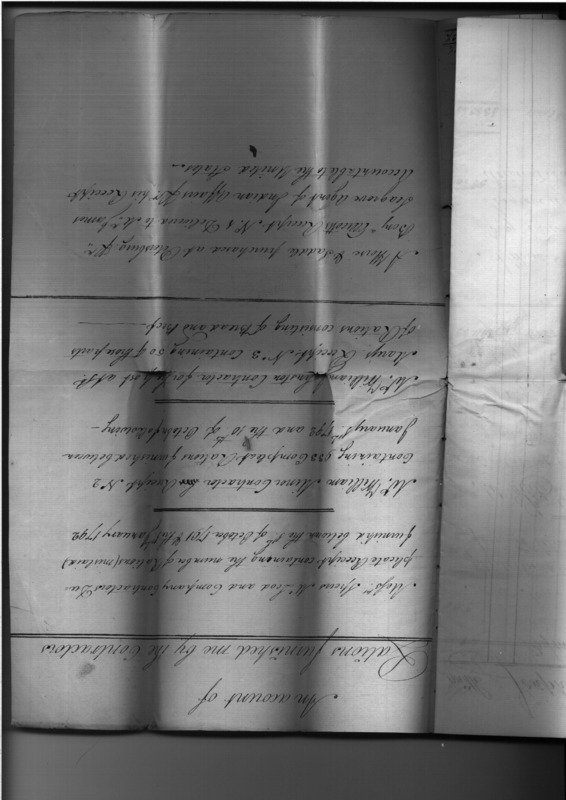 An account of
Rations furnished me by the Contractors
Messrs. Spens McLeod and Company Contractors Du-
plicate Receipt containing the number of Rations (mutual)
furnished between the 1st of October 1791 & 1st January 1792
Mr. William Minor Contractor Receipt No. 2
Containing 933 Complete Rations furnished between
January 1st 1792 and the 10th of October following —
Mr. William Contractor for the post at St.
Marys Receipt No. 3 Containing 50 of them parts
of Rations consisting of Bread and Beef —
A Horse & Saddle purchased at Petersburg
Benjn. Ellicott Receipt No. 5 Delivered to Mr. James
Seagrove Agent of Indian Affairs his Receipt
Accountable to the United States —